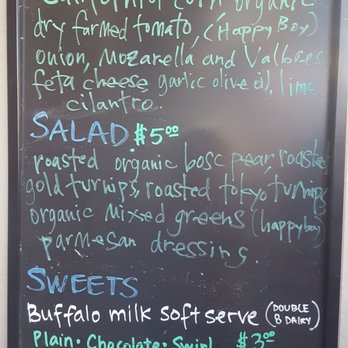 California corn, organic
dry farmed tomato, (Happy Boy)
onion, Mozarella and Valbreso
feta cheese, garlic olive oil, lime,
cilantro.
SALAD $5.00
roasted organic bosc pear, roasted
gold turnips, roasted tokyo turnips
organic mixed greens (happyboy)
parmesan dressing.
SWEETS
Buffalo milk soft serve (DOUBLE
8 DAIRY)
Plain · Chocolate · Swirl $3.00